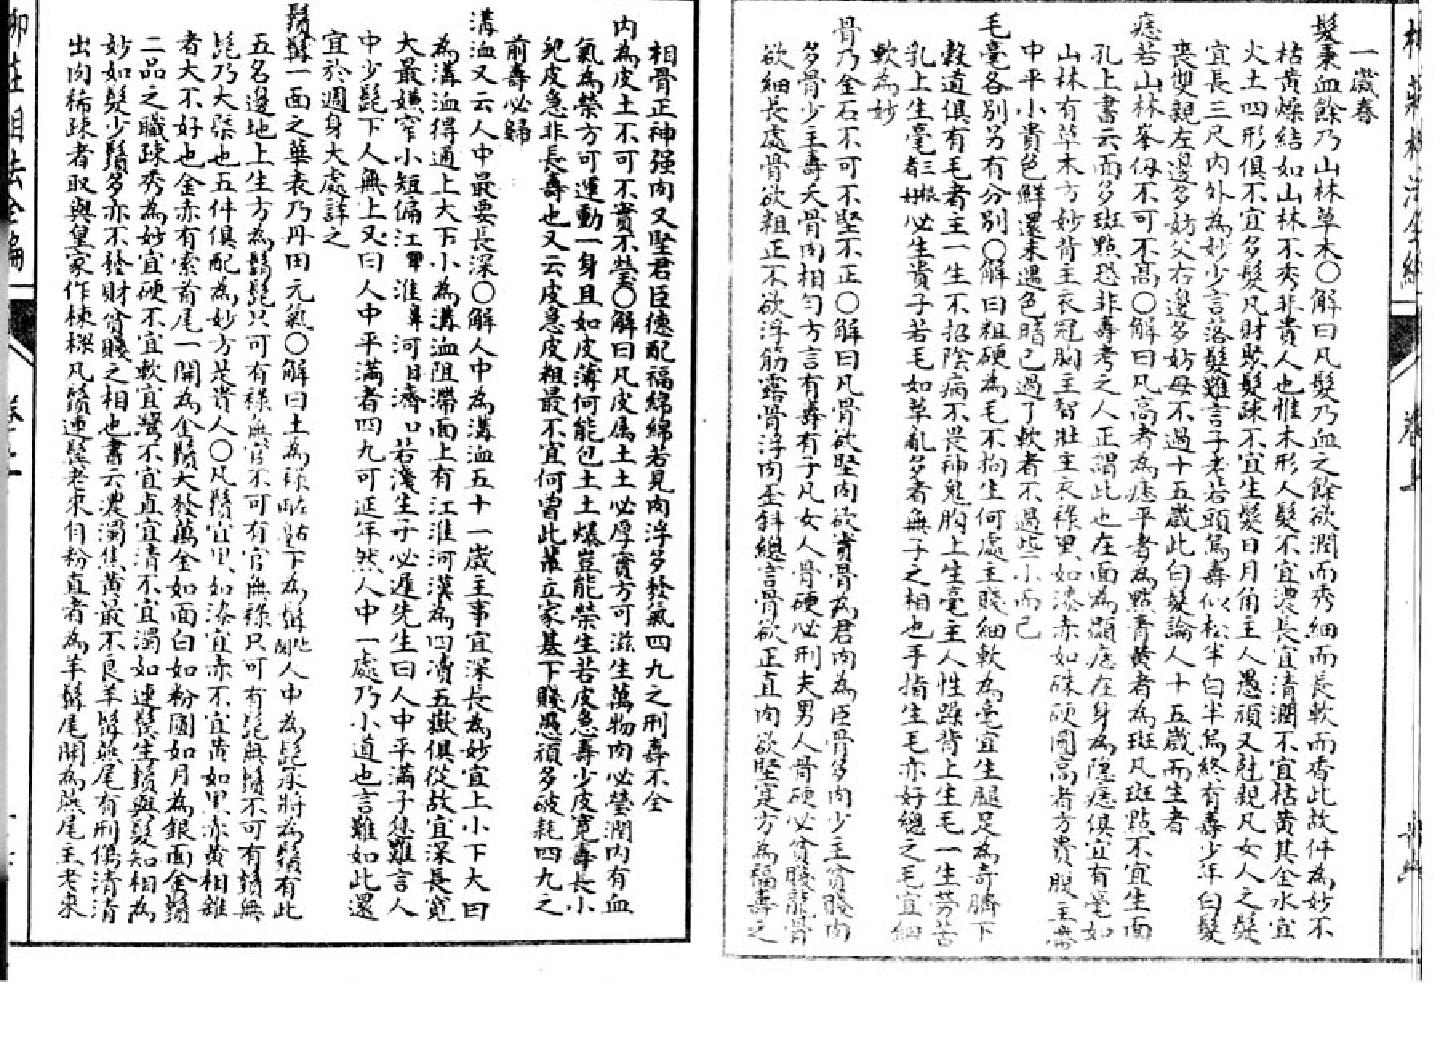 一歲春
髮秉血餘乃山林草木〇解曰凡髮乃血之餘欲潤而秀細而長軟而香此故件為妙不
枯黃燥結如山林不秀非貴人也惟木形人髮不宜濃長宜清潤不宜枯黃其金水宜
火土四形俱不宜多髮凡財聚髮疎不宜生髮日月角主人愚頑又尅親凡女人之髮
宜長三尺內外為妙少言落髮難言子老若頭烏壽似松半白半烏終有壽少年白髮
喪雙親左邊多妨父右邊多妨母不過十五歲此白髮論人十五歲而生者
痣若山林峯仞不可不高〇解曰凡高者為痣平者為點青黃者為斑凡斑點不宜生面
孔上書云面多斑點恐非壽考之人正謂此也在面為顯痣在身為隱痣俱宜有毫如
山林有草木方妙背主衣冠胸主智肚主衣祿黑如漆赤如硃硬圓高者方貴腹主
中平小貴色鮮還未遇色暗已過了軟者不過些小而已
毛毫各別另有分別〇解曰粗硬為毛不拘生何處主賤細軟為毫宜生腿足為奇臍下
穀道俱有毛者主一生不招陰病不畏神鬼胸上生毫主人性躁背上生毛一生勞苦
乳上生毫三根必生貴子若毛如草亂多者無子之相也手指生毛亦好總之毛宜細
軟為妙
骨乃金石不可不堅不正〇解曰凡骨欲堅肉欲實骨為君肉為臣骨多肉少主貧賤肉
多骨少主壽夭骨肉相勻方言有壽有子凡女人骨硬必刑夫男人骨硬必貧賤龍骨
欲細長處骨欲粗正不欲浮筋露骨浮肉歪斜總言骨欲正直肉欲堅寔方為福壽之
相骨正神强肉又堅君臣德配福綿綿若見肉浮多發氣四九之刑壽不全
內為皮土不可不實不瑩〇解曰凡皮属土土必厚實方可滋生萬物肉必瑩潤內有血
氣為榮方可運動一身且如皮薄何能包土土爆豈能榮生若皮急壽少皮寬壽長小
兒皮急非長壽也又云皮急皮粗最不宜何曾此輩立家基下賤愚頑多破耗四九之
前壽必歸
溝洫又云人中最要長深〇解人中為溝洫五十一歲主事宜深長為妙宜上小下大曰
為溝洫得通上大下小為溝洫阻滯面上有江淮河漢為四瀆五嶽俱從故宜深長寬
大最嫌窄小短偏江耳淮鼻河目濟口若淺生子必遲先生曰人中平滿子息難言人
中少髭下人無上又曰人中平滿者四九可延年然人中一處乃小道也言雖如此還
宜於週身大處詳之
鬚髯一面之華表乃丹田元氣〇解曰上為祿下為髯人中為髭承將為鬚有此
五名邊地上生方為鬍髭只可有祿無官不可有官無祿只可有髭無鬚不可有鬚無
髭乃大㮣也五件俱配為妙方是貴人〇凡鬚宜黑如漆宜赤不宜黃如黑赤黃相雜
者大不好也金赤有索首尾一開為金鬚大發萬金如面白如粉圓如月為銀面金鬚
二品之職疎秀為妙宜硬不宜軟宜彎不宜直宜清不宜濁如連鬢生鬚與髮知相為
妙如髮少鬚多亦不發財貧賤之相也書云濃濁焦黃最不良羊髯燕尾有刑傷清清
出肉稀疎者取與皇家作棟樑凡鬚連鬢老來白粉直者為羊髯尾開為燕尾主老來